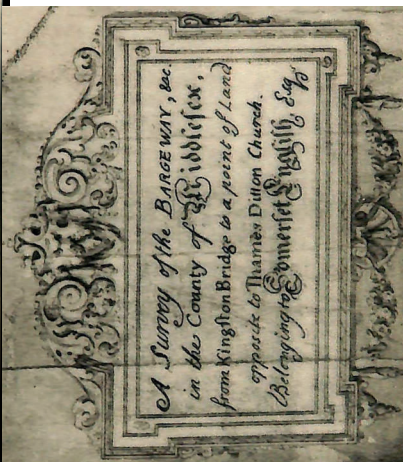 A Survey of the BARGEWAY, &c.
in the County of Middlesex,
from Kingston Bridge to a point of Land
opposite to Thames Ditton Church.
Belonging to Somerset English, Esqr